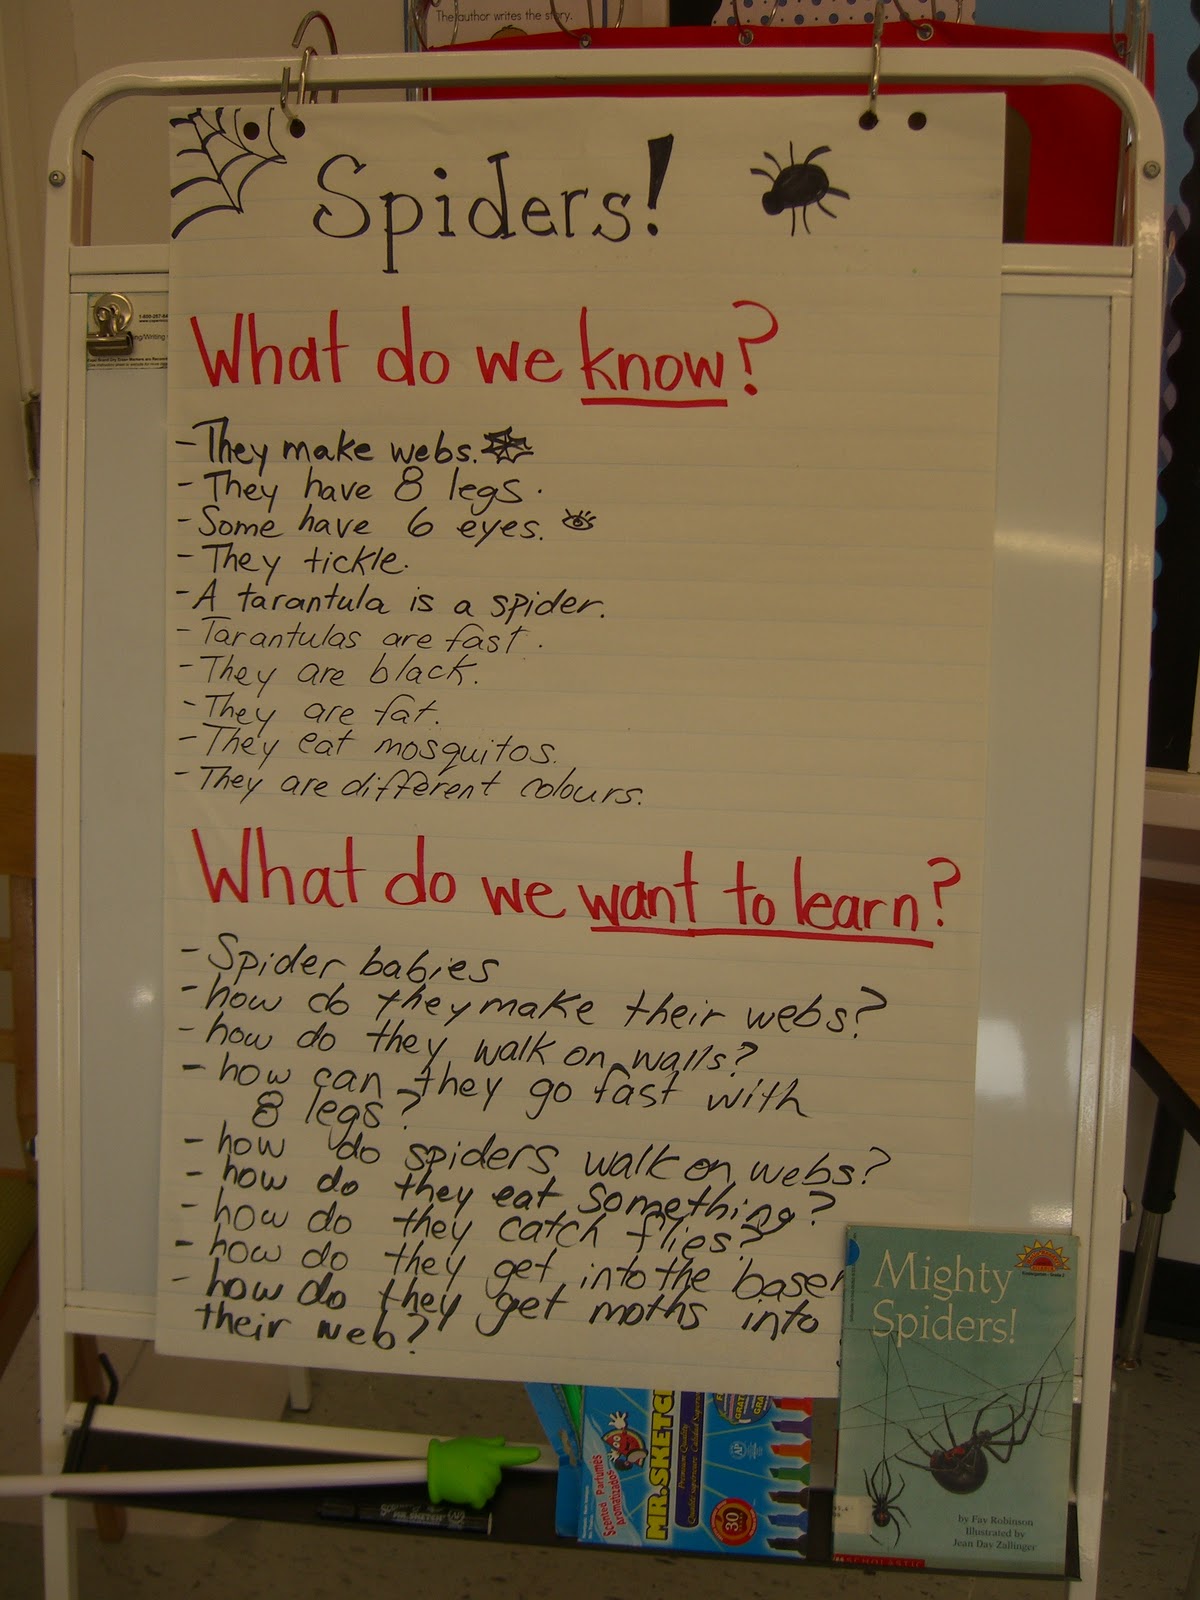 The author writes the story.
Spiders!
What do we know?
- They make webs.
- They have 8 legs.
- Some have 6 eyes.
- They tickle.
- A tarantula is a spider.
- Tarantulas are fast.
- They are black.
- They are fat.
- They eat mosquitos.
- They are different colours.
What do we want to learn?
- Spider babies
- how do they make their webs?
- how do they walk on walls?
- how can they go fast with
8 legs?
- how do spiders walk on webs?
- how do they eat something?
- how do they catch flies?
- how do they get into the basem
- how do they get moths into
their web?
Mighty
Spiders!
by Fay Robinson
Illustrated by
Jean Day Zallinger
SCHOLASTIC
MR.SKETC
Scented Parfumés
Aromatizados
Premium Quality
30